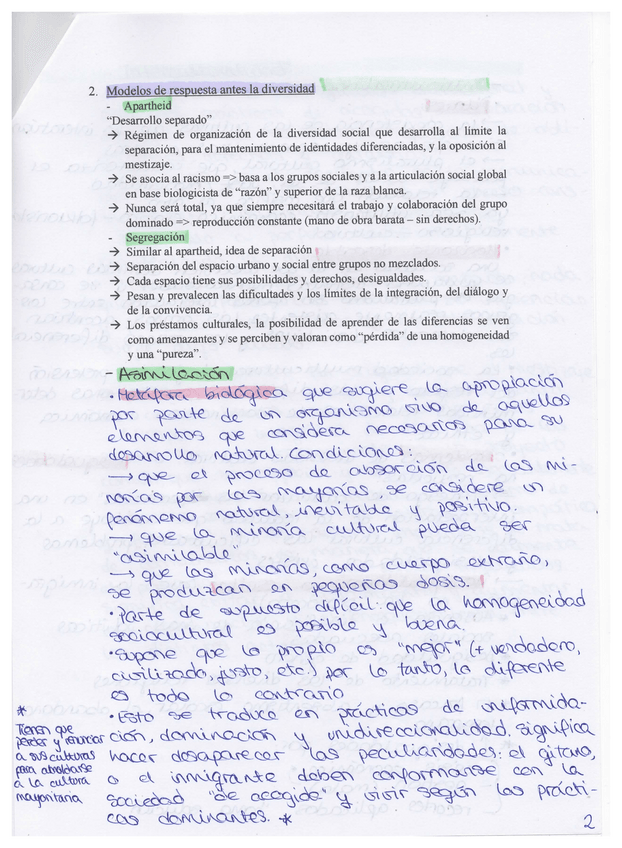 2. Modelos de respuesta antes la diversidad
- Apartheid
“Desarrollo separado”
→ Régimen de organización de la diversidad social que desarrolla al límite la
separación, para el mantenimiento de identidades diferenciadas, y la oposición al
mestizaje.
→ Se asocia al racismo => basa a los grupos sociales y a la articulación social global
en base biologicista de “razón” y superior de la raza blanca.
→ Nunca será total, ya que siempre necesitará el trabajo y colaboración del grupo
dominado => reproducción constante (mano de obra barata – sin derechos).
- Segregación
→ Similar al apartheid, idea de separación
→ Separación del espacio urbano y social entre grupos no mezclados.
→ Cada espacio tiene sus posibilidades y derechos, desigualdades.
→ Pesan y prevalecen las dificultades y los límites de la integración, del diálogo y
de la convivencia.
→ Los préstamos culturales, la posibilidad de aprender de las diferencias se ven
como amenazantes y se perciben y valoran como “pérdida” de una homogeneidad
y una “pureza”.
- Asimilación
· Metáfora biológica que sugiere la apropiación
por parte de un organismo vivo de aquellos
elementos que considera necesarios para su
desarrollo natural. Condiciones:
→ que el proceso de absorción de las mi-
norías por las mayorías se considere un
fenómeno natural, inevitable y positivo.
→ que la minoría cultural pueda ser
"asimilable"
→ que las minorías, como cuerpo extraño,
se produzcan en pequeñas dosis.
· Parte de supuesto difícil: que la homogeneidad
sociocultural es posible y buena.
· Supone que lo propio es "mejor" (+ verdadero,
civilizado, justo, etc) por lo tanto, la diferente
es todo lo contrario
· Esto se traduce en prácticas de uniformida-
ción, dominación y unidireccionalidad, significa
hacer desaparecer las peculiaridades: el gitano,
o el inmigrante deben conformarse con la
sociedad "de acogida" y vivir según las prácti-
cas dominantes. *
*
Tienen que
perder y renunciar
a sus culturas
para amoldarse
a la cultura
mayoritaria
2